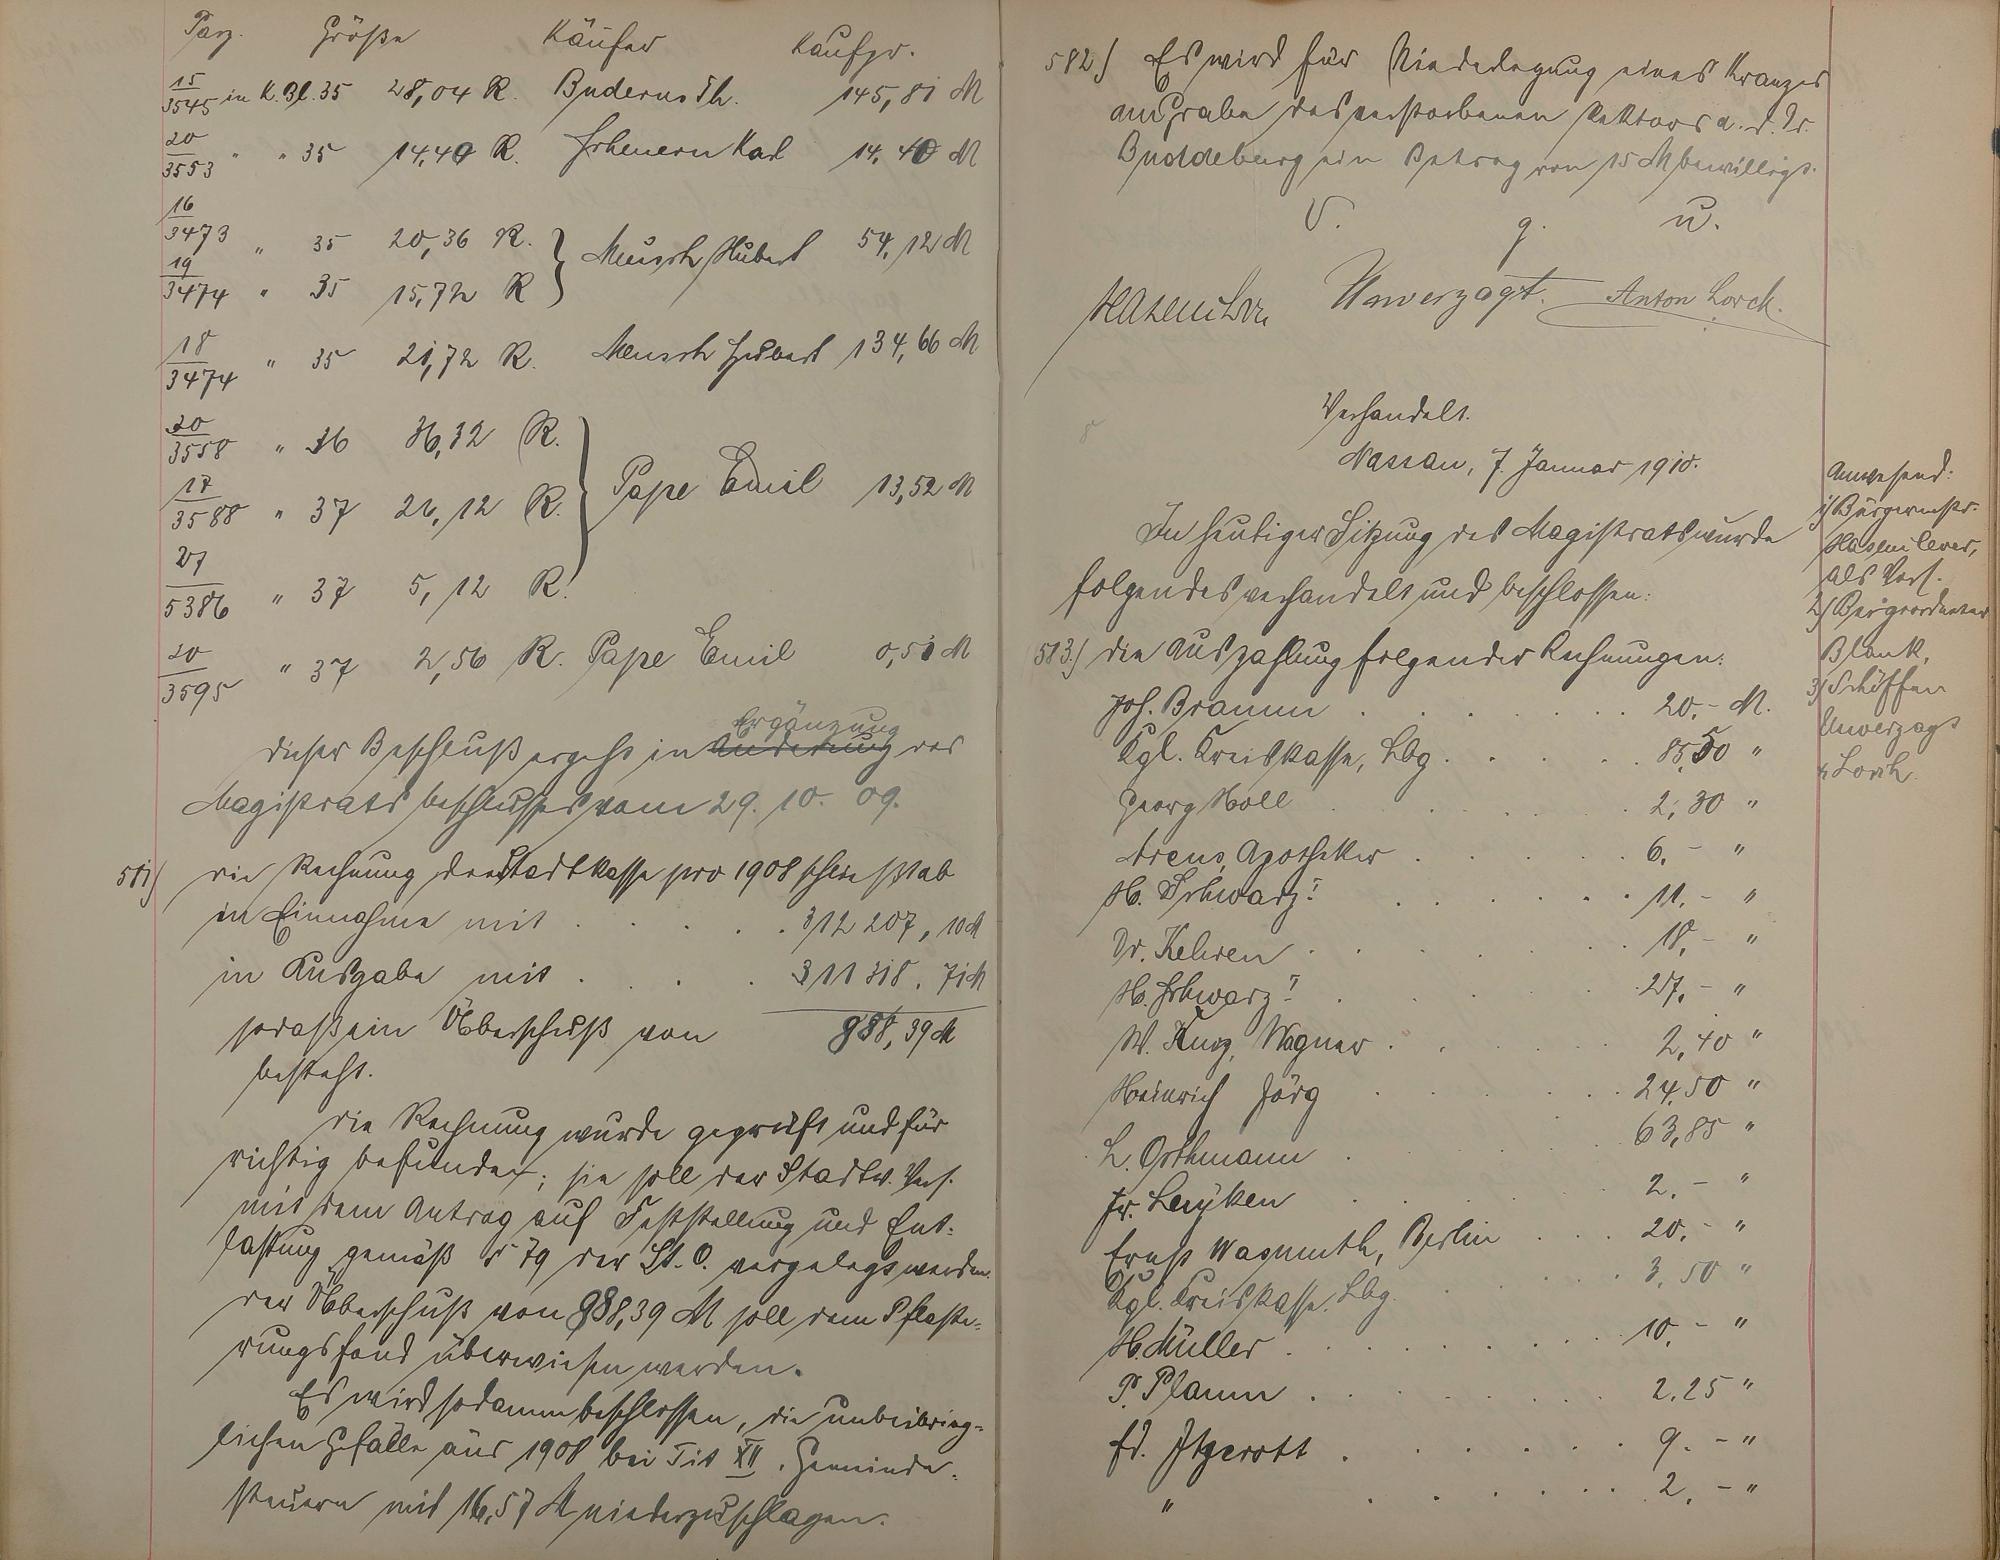 Parz. Größe Käufer Kaufpr.
15/3545 in K.Bl. 35 28,04 R. Buderus Th. 145,81 M
20/3553 " " 35 14,40 R. Scheuern Karl 14,40 M
16/3473 " 35 20,36 R. } Meusch Hubert 54,12 M
19/3474 " 35 15,72 R
18/3474 " 35 21,72 R. Meusch Hubert 134,66 M
20/3558 " 36 36,32 R. } Pape Emil 13,52 M
17/3588 " 37 26,12 R.
27/5386 " 37 5,12 R.
20/3595 " 37 2,56 R. Pape Emil 0,51 M
Ergänzung
Dieser Beschluß ergeht in Änderung des
Magistratsbeschlusses vom 29. 10. 09.
581) Die Rechnung der Stadtkasse pro 1908 schließt ab
in Einnahme mit . . . . . 312 207, 10 M
in Ausgabe mit . . . . 311 318, 71 M
sodaß ein Überschuß von 888, 39 M
besteht.
Die Rechnung wurde geprüft und für
richtig befunden; sie soll der Stadtv. Vers.
mit dem Antrag auf Feststellung und Ent-
lastung gemäß § 79 der St. O. vorgelegt werden.
Der Überschuß von 888,39 M soll dem Pflaste-
rungsfond überwiesen werden.
Es wird sodann beschlossen, die unbeibring-
lichen Gefälle aus 1908 bei Tit XII. Gemeinde-
steuern mit 16,57 M niederzuschlagen.
582) Es wird für Niederlegung eines Kranzes
am Grabe des verstorbenen Rektors a. D. Dr.
Buddeberg ein Betrag von 15 M bewilligt.
V. g. u.
Hasenclever Unverzagt. Anton Lorch.
Verhandelt.
Nassau, 7. Januar 1910.
In heutiger Sitzung des Magistrats wurde
folgendes verhandelt und beschlossen:
Anwesend:
1) Bürgermstr.
Hasenclever,
als Vors.
2) Beigeordneter
Blank,
3) Schöffen
Unverzagt
4 Lorch.
583.) Die Auszahlung folgender Rechnungen:
Joh. Bramm . . . . . . . 20,- M.
Kgl. Kreiskasse, Lbg. . . . . . 85,50 "
Georg Noll . . . . . . 2,30 "
Arens, Apotheker . . . . . 6,- "
H. Schwarz I . . . . . . 11,- "
Dr. Kehren . . . . . . 18,- "
H. Schwarz I . . . . . . 27,- "
W. Kurz, Wagner . . . . . 2,40 "
Heinrich Jörg . . . . . 24,50 "
L. Orthmann . . . . . 63,85 "
Fr. Leuken . . . . . 2,- "
Ernst Wasmuth, Berlin . . . 20,- "
Kgl. Kreiskasse, Lbg. . . . . 3,50 "
H. Müller . . . . . . . 10,- "
P. Plamm . . . . . . 2,25 "
Fd. Itzerott . . . . . . 9,- "
" . . . . . . 2,- "